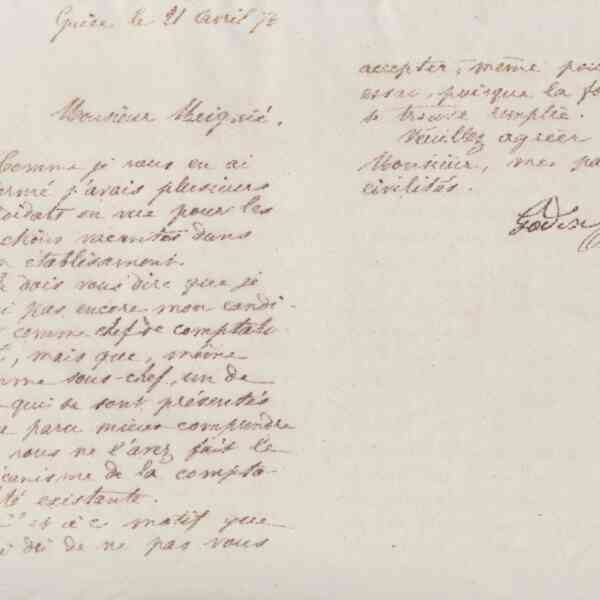 Guise le 21 avril 73
Monsieur Meignié.
Comme je vous en ai
formé j'avais plusieurs
didats en vue pour les
ctions vacantes dans
n établissement.
dois vous dire que je
i pas encore mon candi-
comme chef de comptabi-
, mais que, même
mme sous-chef, un de
qui se sont présentés
paru mieux comprendre
vous ne l'avez fait le
canisme de la compta-
té existante.
est à ce motif que
i dû de ne pas vous
accepter, même pou
essai, puisque la fo
se trouve remplie.
Veuillez agréer
Monsieur, mes pa
civilités.
Godin